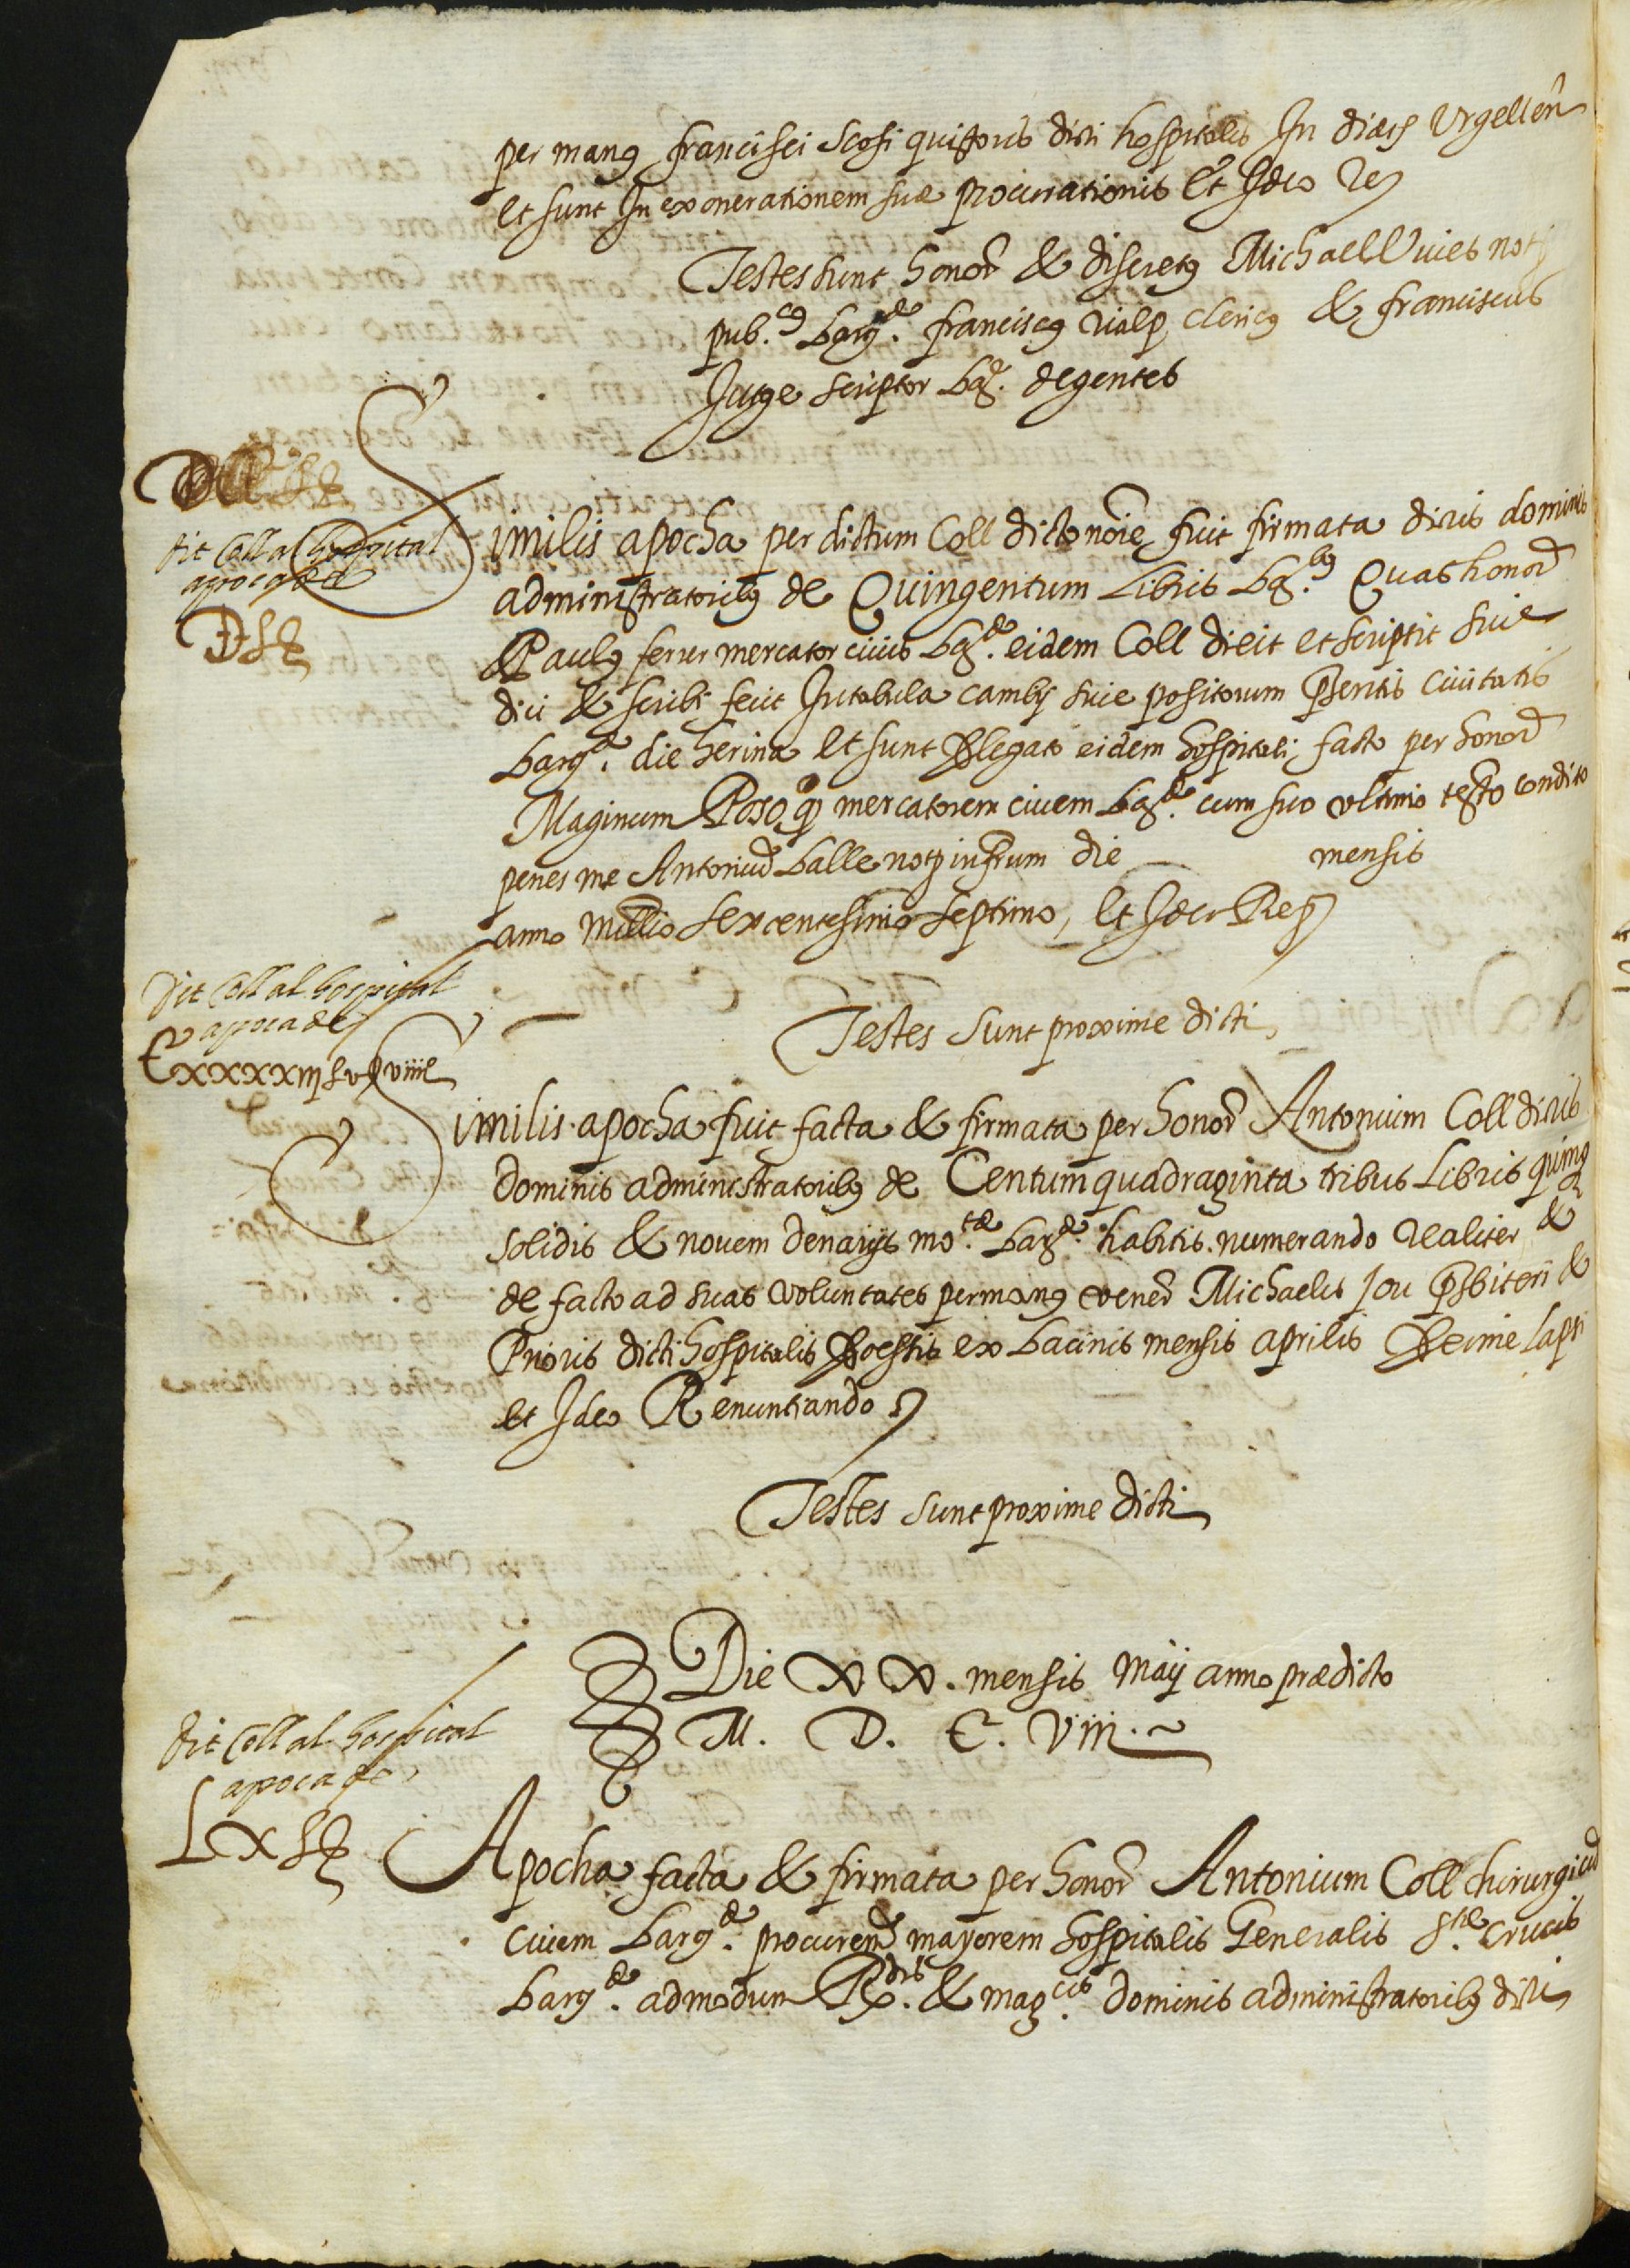 per manꝰ francisci Scosi quistoris dicti hospitalis In dioecȩ Urgellen̄
et sunt In exonerationem sue procurationis Et Ideo Reȝ
Testes sunt honor & discretꝰ Michael Viues notȝ
pub.cꝰ barȝe. franciscꝰ vialp clericꝰ & franciscus
Jutge scriptor bȝe. degentes
dit Coll al hospital
apoca de
D ₤ ȝ
Similis apocha per dictum Coll dicto noīe fuit firmata dictis dominis
administratoribꝰ de Quingentum Libris bȝ.bꝰ Quas honor
Paulꝰ ferrer mercator ciuis bȝe. eidem Coll dicit et scripsit siue
dici & scribi fecit In tabula cambij siue positorum pn̄tis ciuitatis
barȝe. die herina et sunt ꝓ legato eidem hospitali facto per honor
Maginum mercatorem ciuem bȝe. cum suo ultimo testo condito
penes me Antoniū batlle notȝ infrum die mensis
anno millio sexcentesimo septimo, Et Ideo Reȝ
Testes sunt proxime dicti
dit Coll al hospital
apoca de
Cxxxxiij ₤ v ß viiij
Similis apocha fuit facta & firmata per honor Antonium Coll dictis
dominis administratoribꝰ de Centum quadraginta tribus Libris quinqȝ
solidis & nouem denarijs mo.te barȝe. habitis numerando realiter &
de facto ad suas voluntates per manꝰ vener Michaelis Jou pȓsbiteri &
Prioris dicti hospitalis ex bacinis mensis aprilis lapsi
et Ideo Renuntiando ȝ
Testes sunt proxime dicti
Die XX. mensis Maij anno prædicto
M. D. C. VIII.
dit Coll al hospital
apoca de
LX ₤ ȝ
Apocha facta & firmata per honor Antonium Coll chirurgicū
ciuem barȝe. procurem mayorem hospitalis Generalis Ste. crucis
barȝe. admodum Rx.dis & magcis. dominis administratoribꝰ dicti